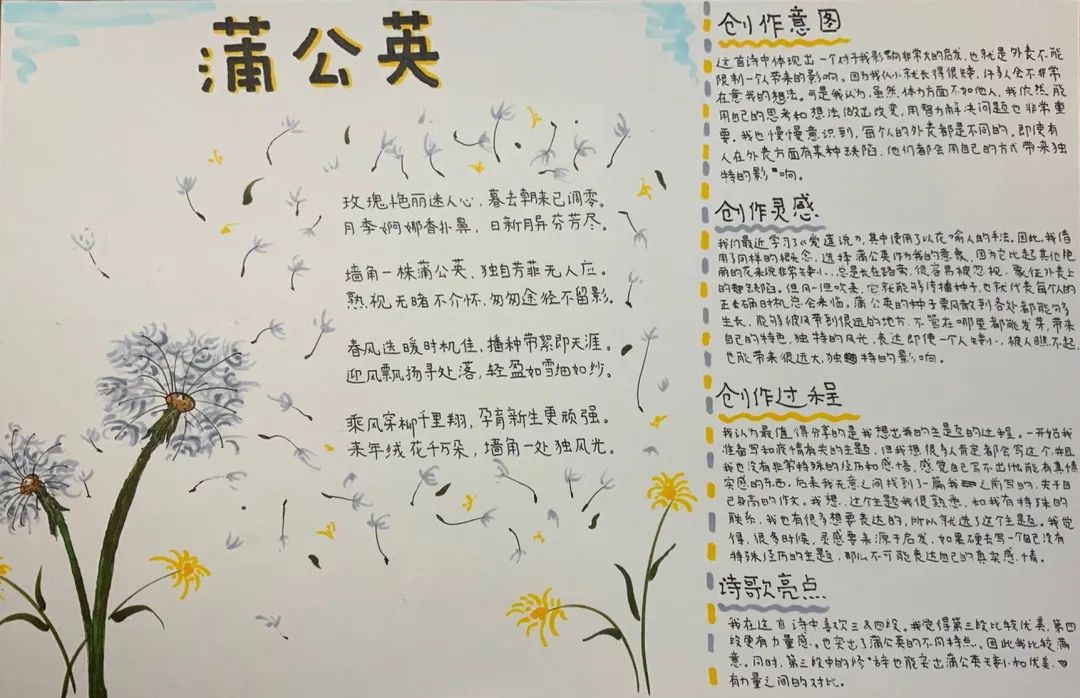 蒲公英
玫瑰艳丽迷人心，暮去朝来已凋零。
月季婀娜香扑鼻，日新月异芬芳尽。
墙角一株蒲公英，独自芳菲无人应。
熟视无睹不介怀，匆匆途径不留影。
春风送暖时机佳，播种带絮即天涯。
迎风飘扬寻处落，轻盈如雪细如纱。
乘风穿柳千里翔，孕育新生更顽强。
来年绒花千万朵，墙角一处独风光。
创作意图
这首诗中体现出一个对于我影响非常大的启发，也就是外表不能
限制一个人带来的影响。因为我从小就长得很矮，许多人会不非常
在意我的想法。可是我认为，虽然体力方面不如他人，我依然能
用自己的思考和想法做出改变，用智力解决问题也非常重
要。我也慢慢意识到，每个人的外表都是不同的。即使有
人在外表方面有某种缺陷，他们都会用自己的方式带来独
特的影响。
创作灵感
我们最近学习了《爱莲说》，其中使用了以花喻人的手法。因此，我借
用了同样的概念，选择蒲公英作为我的意象，因为它比起其他艳
丽的花来说非常矮小，总是长在路旁，很容易被忽视，象征外表上
的缺陷。但风一但吹来，它就能够传播种子，也就代表每个人的
正确时机总会来临。蒲公英的种子飘散到各处都能够
生长，能够被风带到很远的地方，不管在哪里都能发芽，带来
自己的特色，独特的风光，表达即使一个人矮小，被人瞧不起，
也能带来很远大，独特的影响。
创作过程
我认为最值得分享的是我想出我的主题的过程。一开始我
准备写和疫情有关的主题，但我想很多人肯定都会写这个，并且
我也没有非常特殊的经历和感悟，感觉自己写不出能有真情
实感的东西。后来我无意之间找到了一篇我之前写的，关于自
己身高的作文。我想，这个主题我很熟悉，和我有特殊的
联系，我也有很多想要表达的，所以就选了这个主题。我觉
得，很多时候，灵感要来源于启发，如果硬去写一个自己没有
特殊经历的主题，那么不可能表达自己的真实感情。
诗歌亮点
我在这首诗中喜欢三&四段。我觉得第三段比较优美，第四
段更有力量感，也突出了蒲公英的不同特点，因此我比较满
意。同时，第三段中的修辞也能突出蒲公英矮小和优美，
有力量之间的对比。